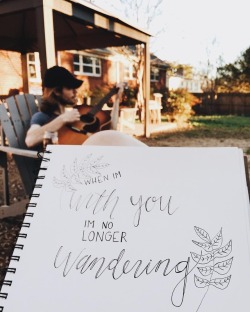 WHEN IM
with you
IM NO
LONGER
Wandering